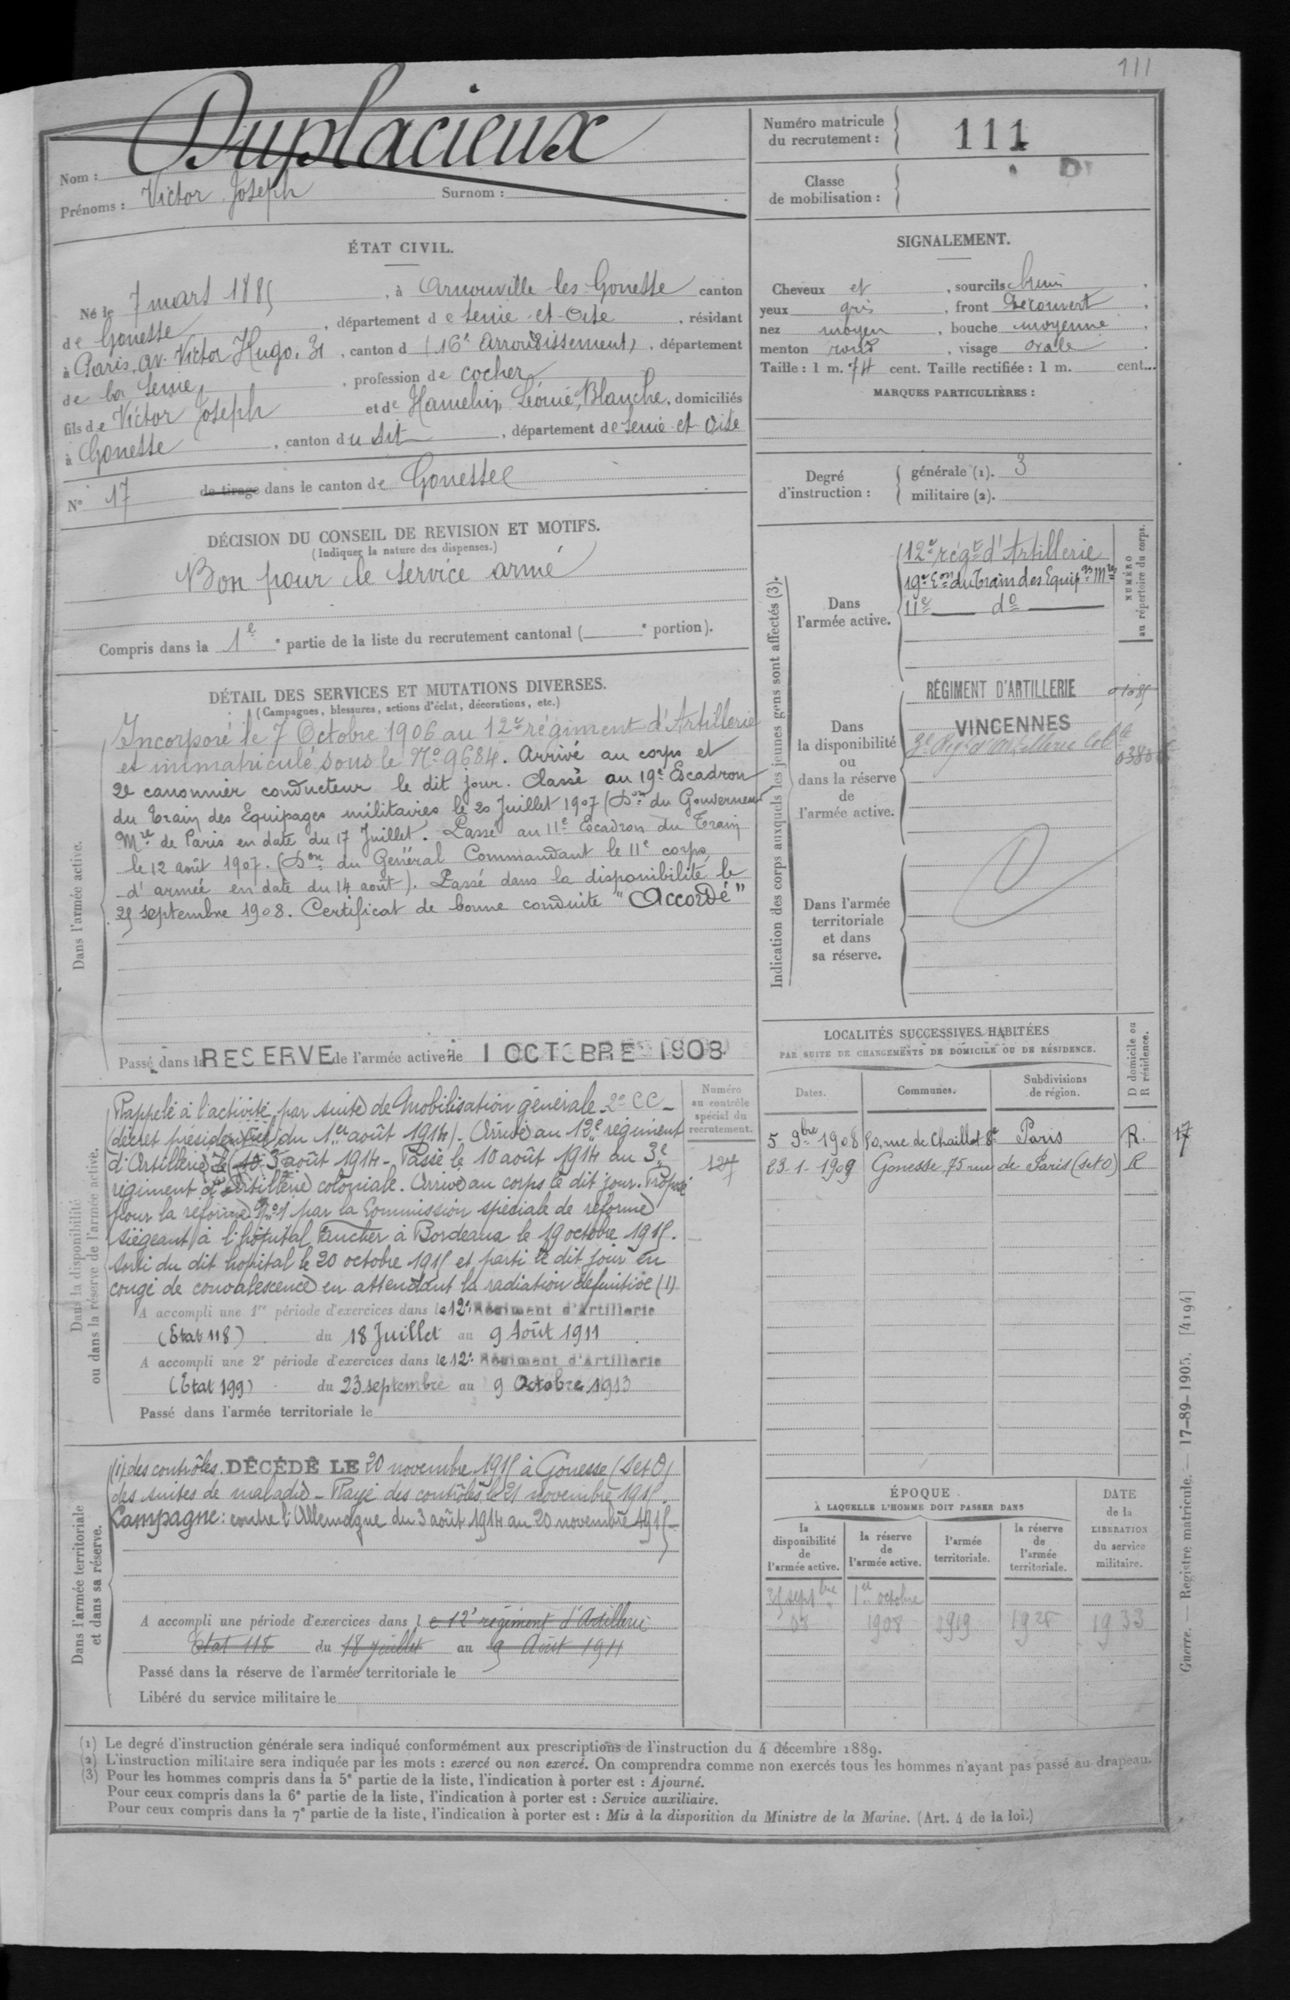 111
Nom : Duplacieux
Prénoms : Victor Joseph Surnom :
Numéro matricule
du recrutement : 111
Classe
de mobilisation :
ÉTAT CIVIL.
Né le 7 mars 1885, à Arnouville les Gonesse canton
de Gonesse, département de Seine et Oise, résidant
à Paris, av. Victor Hugo, 31, canton d (16e arrondissement), département
de la Seine, profession de cocher
fils de Victor Joseph et de Hamelin, Léonie, Blanche, domiciliés
à Gonesse, canton du dit, département de Seine et Oise
N° 17 de tirage dans le canton de Gonesse
SIGNALEMENT.
Cheveux et , sourcils bruns
yeux gris , front découvert
nez moyen , bouche moyenne
menton rond , visage ovale
Taille : 1 m. 74 cent. Taille rectifiée : 1 m. cent.
MARQUES PARTICULIÈRES :
Degré
d'instruction :
générale (1). 3
militaire (2).
DÉCISION DU CONSEIL DE REVISION ET MOTIFS.
(Indiquer la nature des dispenses.)
Bon pour le service armé
Compris dans la 1e partie de la liste du recrutement cantonal ( e portion).
Indication des corps auxquels les jeunes gens sont affectés (3).
NUMÉRO
au répertoire du corps.
Dans
l'armée active.
12e régt d'Artillerie
19e Eon du Train des Equipes Mres
11e do
Dans
la disponibilité
ou
dans la réserve
de
l'armée active.
RÉGIMENT D'ARTILLERIE
VINCENNES
3e Régt d'Artillerie Colle
Dans l'armée
territoriale
et dans
sa réserve.
DÉTAIL DES SERVICES ET MUTATIONS DIVERSES.
(Campagnes, blessures, actions d'éclat, décorations, etc.)
Dans l'armée active.
Incorporé le 7 Octobre 1906 au 12e régiment d'Artillerie
et immatriculé sous le No 9684. Arrivé au corps et
2e canonnier conducteur le dit jour. Classé au 19e Escadron
du Train des Equipages militaires le 20 Juillet 1907 (Don du Gouverneur
Mre de Paris en date du 17 Juillet. Passé au 11e Escadron du Train
le 12 août 1907. (Don du Général Commandant le 11e corps
d'armée en date du 14 août). Passé dans la disponibilité le
25 septembre 1908. Certificat de bonne conduite "Accordé"
Passé dans la RESERVE de l'armée active le 1 OCTOBRE 1908
Dans la disponibilité
ou dans la réserve de l'armée active.
Numéro
au contrôle
spécial du
recrutement.
127
Rappelé à l'activité par suite de Mobilisation générale 2o CC
(décret présidentiel du 1er août 1914). Arrivé au 12e régiment
d'Artillerie le 3 août 1914 - Passé le 10 août 1914 au 3e
régiment d'Artillerie coloniale. Arrivé au corps le dit jour. Proposé
pour la réforme No 1 par la Commission spéciale de réforme
siégeant à l'hôpital à Bordeaux le 19 octobre 1915.
Sorti du dit hôpital le 20 octobre 1915 et parti le dit jour en
congé de convalescence en attendant la radiation définitive (1)
A accompli une 1re période d'exercices dans le 12e Régiment d'Artillerie
(Etat 118) du 18 Juillet au 9 Août 1911
A accompli une 2e période d'exercices dans le 12e Régiment d'Artillerie
(Etat 199) du 23 septembre au 9 Octobre 1913
Passé dans l'armée territoriale le
Dans l'armée territoriale
et dans sa réserve.
(1) des contrôles. DÉCÉDÉ LE 20 novembre 1915 à Gonesse (S et O)
des suites de maladie - Rayé des contrôles le 21 novembre 1915.
Campagne : contre l'Allemagne du 3 août 1914 au 20 novembre 1915 -
A accompli une période d'exercices dans le 12e régiment d'Artillerie
Etat 118 du 18 juillet au 9 Août 1911
Passé dans la réserve de l'armée territoriale le
Libéré du service militaire le
LOCALITÉS SUCCESSIVES HABITÉES
PAR SUITE DE CHANGEMENTS DE DOMICILE OU DE RÉSIDENCE.
D domicile ou
R résidence.
Dates. Communes. Subdivisions
de région.
5 9bre 1908 50, rue de Chaillot 8e Paris R. 17
23-1-1909 Gonesse 75 rue de Paris (S et O) R
ÉPOQUE
À LAQUELLE L'HOMME DOIT PASSER DANS
la
disponibilité
de
l'armée active.
la réserve
de
l'armée active.
l'armée
territoriale.
la réserve
de
l'armée
territoriale.
DATE
de la
LIBÉRATION
du service
militaire.
25 septbre 1er octobre
08 1908 1919 1925 1933
Guerre. — Registre matricule. — 17-89-1905. [4194]
(1) Le degré d'instruction générale sera indiqué conformément aux prescriptions de l'instruction du 4 décembre 1889.
(2) L'instruction militaire sera indiquée par les mots : exercé ou non exercé. On comprendra comme non exercés tous les hommes n'ayant pas passé au drapeau.
(3) Pour les hommes compris dans la 5e partie de la liste, l'indication à porter est : Ajourné.
Pour ceux compris dans la 6e partie de la liste, l'indication à porter est : Service auxiliaire.
Pour ceux compris dans la 7e partie de la liste, l'indication à porter est : Mis à la disposition du Ministre de la Marine. (Art. 4 de la loi.)